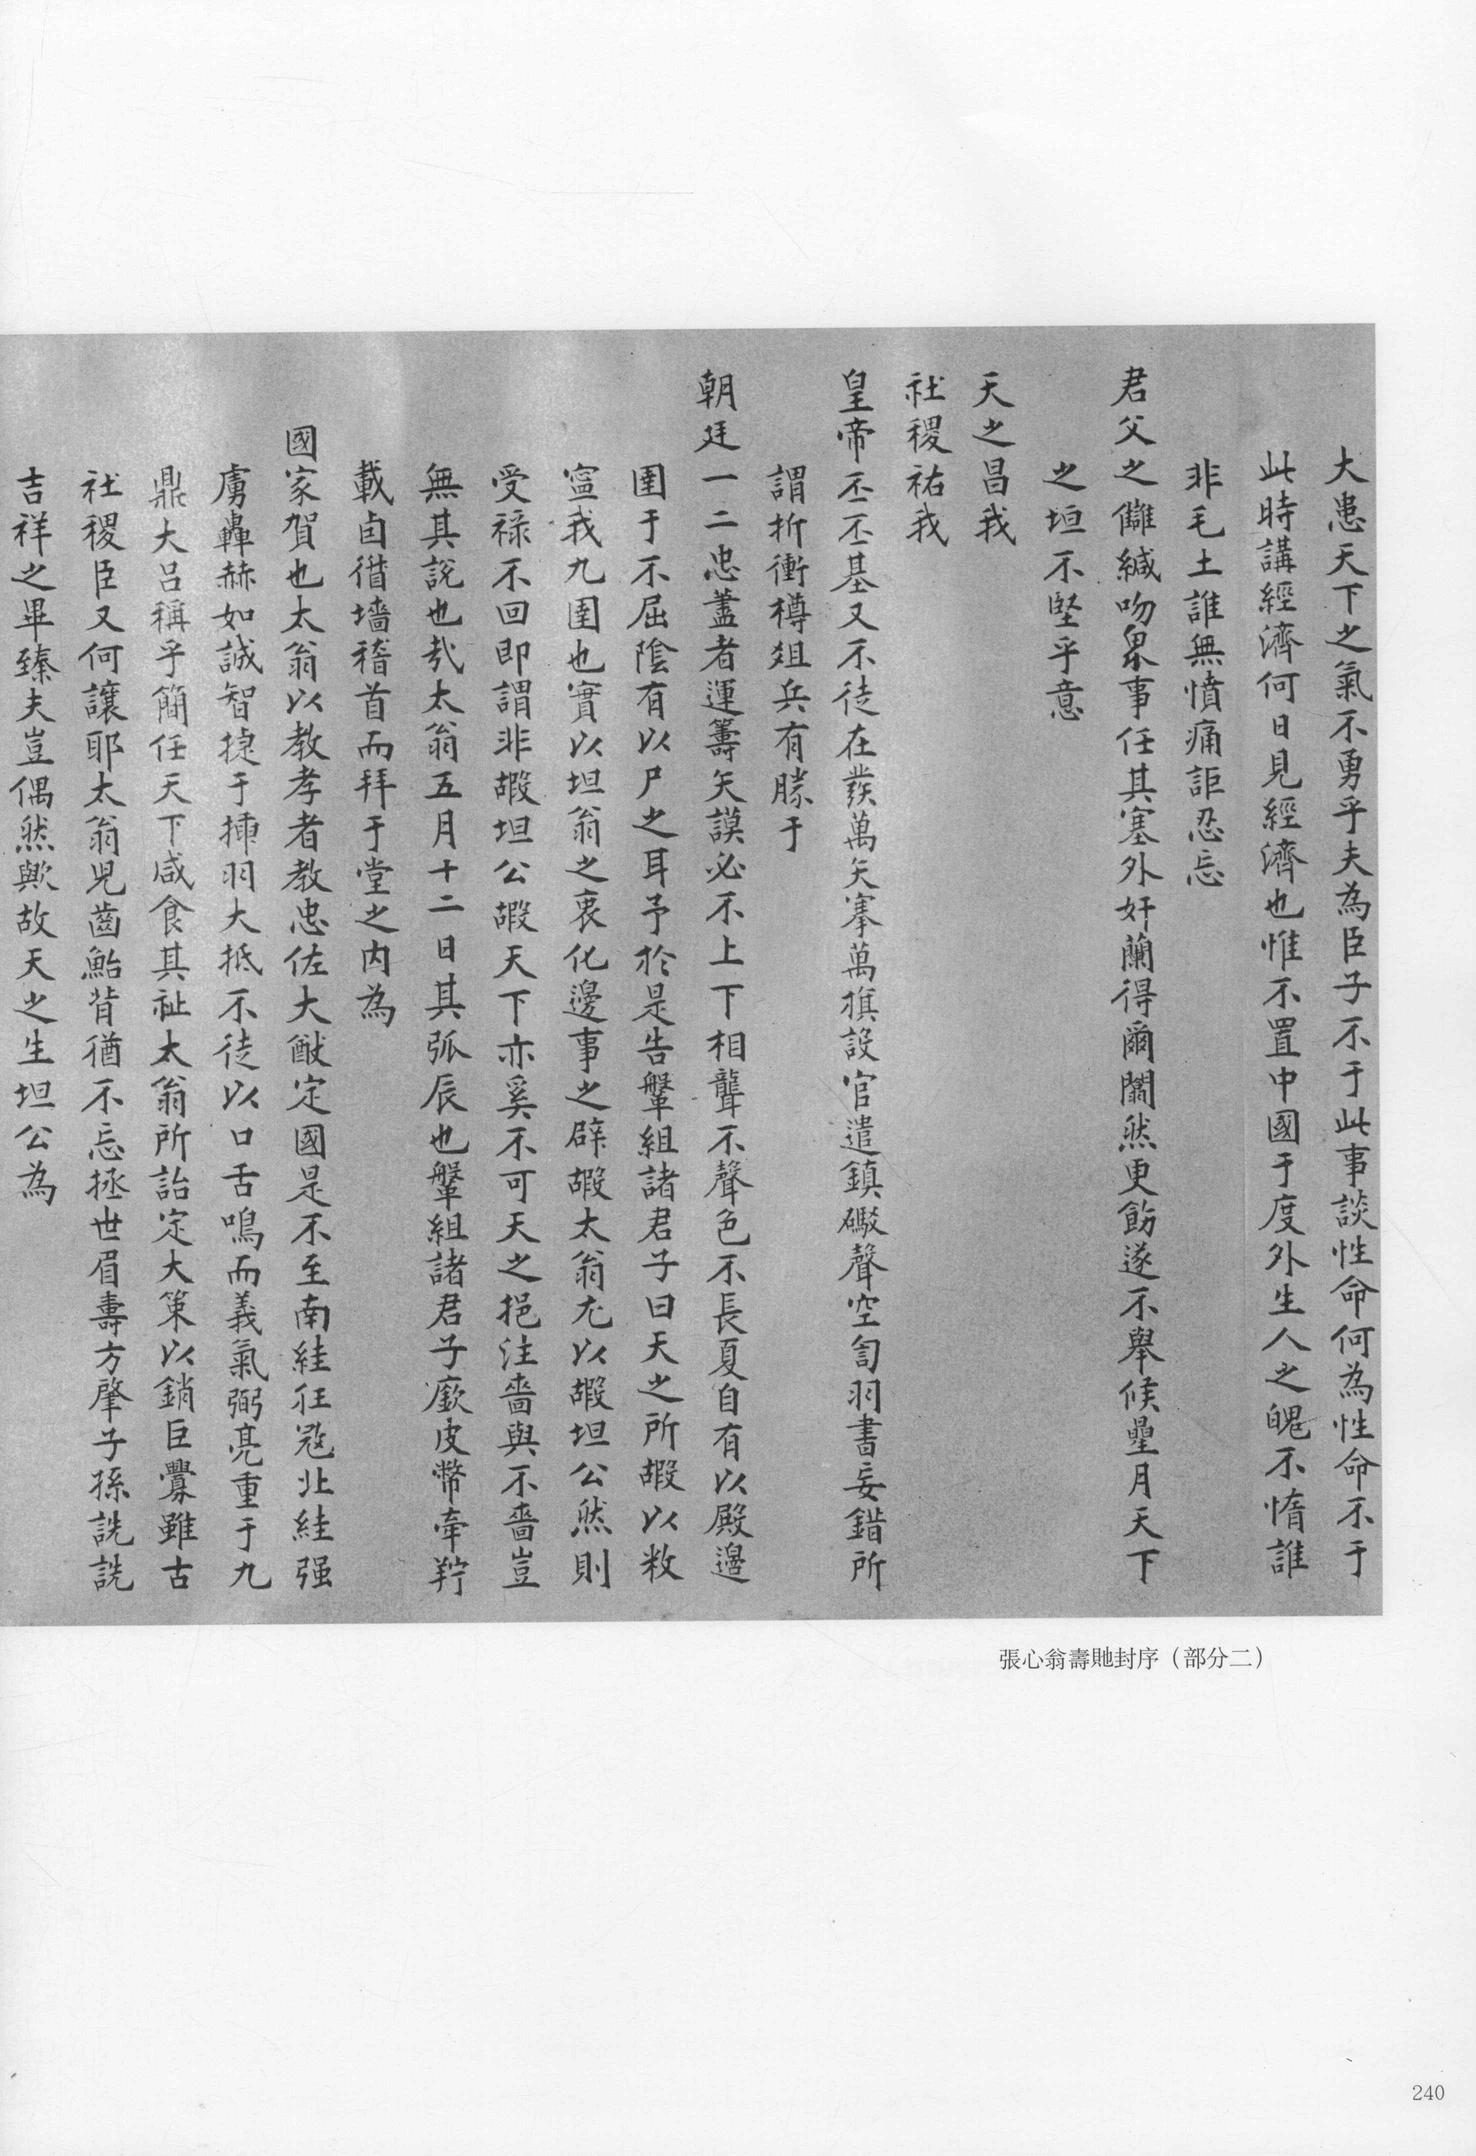 大患天下之氣不勇乎夫為臣子不于此事談性命何為性命不于
此時講經濟何日見經濟也惟不置中國于度外生人之魄不惰誰
非毛土誰無憤痛詎忍忘
君父之讎緘吻畀事任其塞外奸蘭得爾闒然更飭遂不舉候壘月天下
之垣不堅乎意
天之昌我
社稷祐我
皇帝丕丕基又不徒在發萬矢搴萬旗設官遣鎮礮聲空訇羽書妄錯所
謂折衝樽俎兵有勝于
朝廷一二忠藎者運籌矢謨必不上下相聾不聲色不長夏自有以殿邊
圉于不屈陰有以尸之耳予於是告鞶組諸君子曰天之所嘏以敉
寍我九圉也實以坦翁之衷化邊事之辟嘏太翁尤以嘏坦公然則
受祿不回即謂非嘏坦公嘏天下亦奚不可天之挹注嗇與不嗇豈
無其說也㢤太翁五月十二日其弧辰也鞶組諸君子廞皮幣牽羜
載卣偕墻稽首而拜于堂之内為
國家賀也太翁以教孝者教忠佐大猷定國是不至南絓狂冦北絓强
虜轟赫如誠智捷于揷羽大抵不徒以口舌鳴而義氣弼亮重于九
鼎大呂稱乎簡任天下咸食其祉太翁所詒定大策以銷巨釁雖古
社稷臣又何讓耶太翁兒齒鮐背猶不忘拯世眉壽方肇子孫詵詵
吉祥之畢臻夫豈偶然歟故天之生坦公為
張心翁壽貤封序（部分二）
240